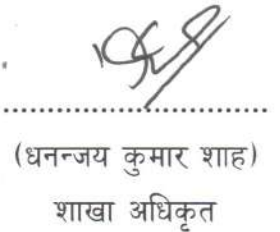 (धनन्जय कुमार शाह)
शाखा अधिकृत